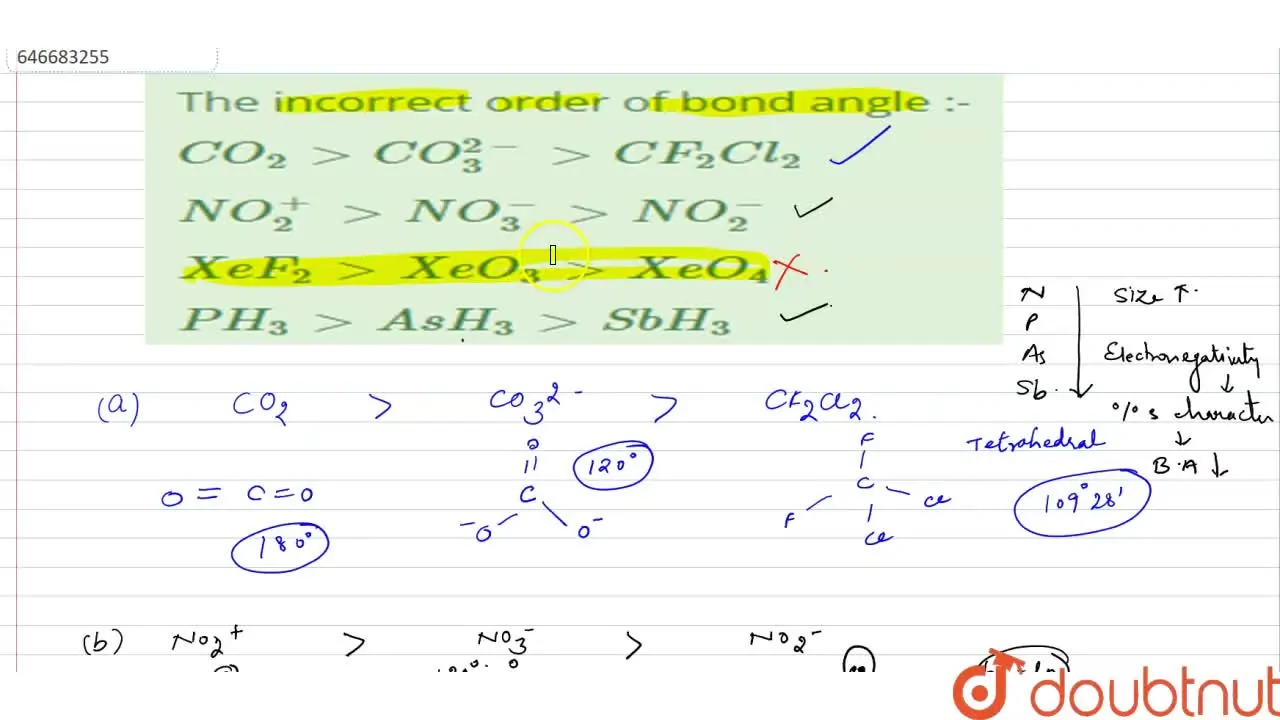 646683255
The incorrect order of bond angle :-
CO₂ > CO₃²⁻ > CF₂Cl₂ ✓
NO₂⁺ > NO₃⁻ > NO₂⁻ ✓
XeF₂ > XeO₃ > XeO₄ ✗
PH₃ > AsH₃ > SbH₃ ✓
N
P
As
Sb
Size ↑
Electronegativity
↓
% s character
↓
B.A ↓
(a) CO₂ > CO₃²⁻ > CF₂Cl₂.
O = C = O
180°
O
||
C
⁻O O⁻
120°
F
C
F Cl
Cl
Tetrahedral
109°28'
(b) NO₂⁺ > NO₃⁻ > NO₂⁻
doubtnut